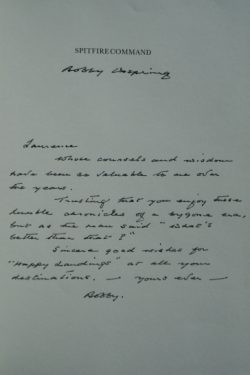 SPITFIRE COMMAND
Bobby Oxspring
Laurence
whose counsels and wisdom
have been so valuable to me over
the years.
Trusting that you enjoy these
humble chronicles of a bygone era,
but as the man said "what's
better than that?"
Sincere good wishes for
"Happy Landings" at all your
destinations. — yours ever —
Bobby.